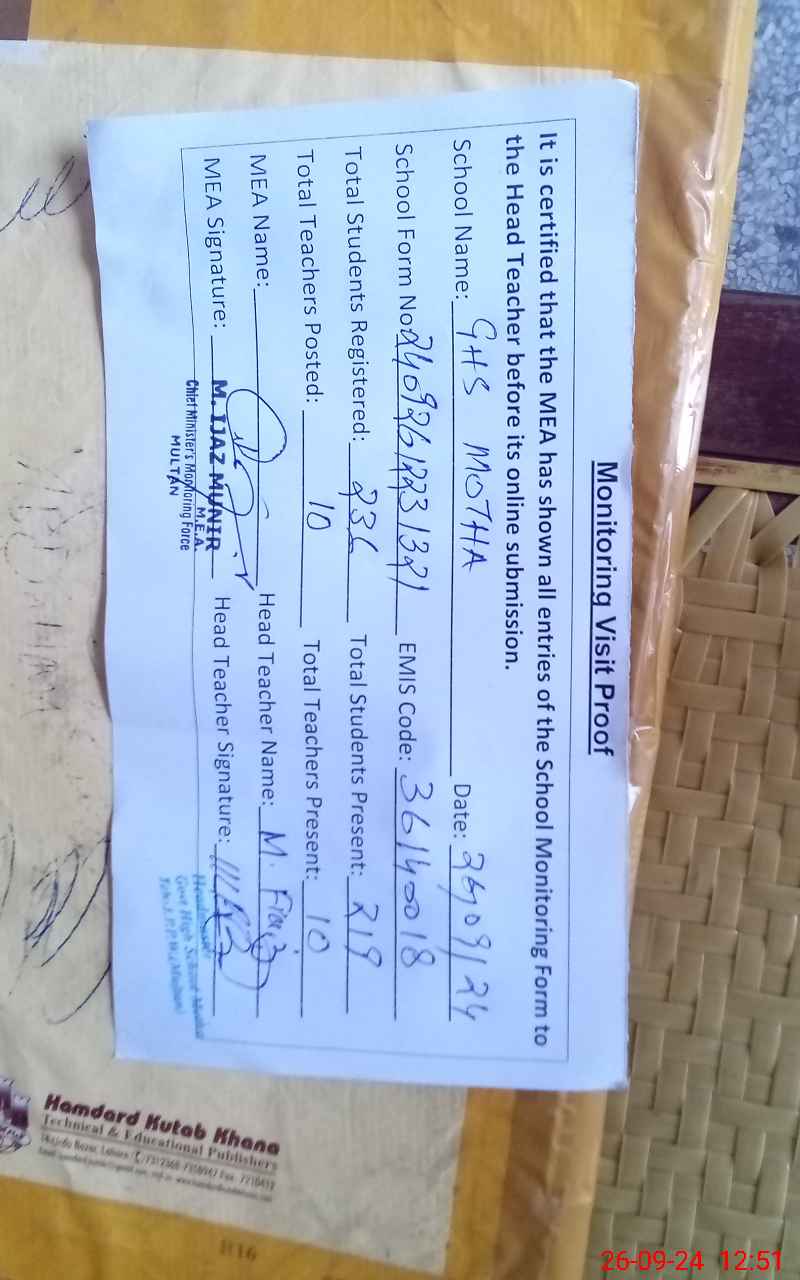 Monitoring Visit Proof
It is certified that the MEA has shown all entries of the School Monitoring Form to
the Head Teacher before its online submission.
School Name: GHS MOTHA Date: 26/09/24
School Form No: 24092612231321 EMIS Code: 36140018
Total Students Registered: 236 Total Students Present: 219
Total Teachers Posted: 10 Total Teachers Present: 10
MEA Name: Head Teacher Name: M. Fiaz
MEA Signature: Head Teacher Signature:
M. IJAZ MUNIR
M.E.A.
Chief Minister's Monitoring Force
MULTAN
Govt High School
Hamdard Kutab Khana
Technical & Educational Publishers
26-09-24 12:51